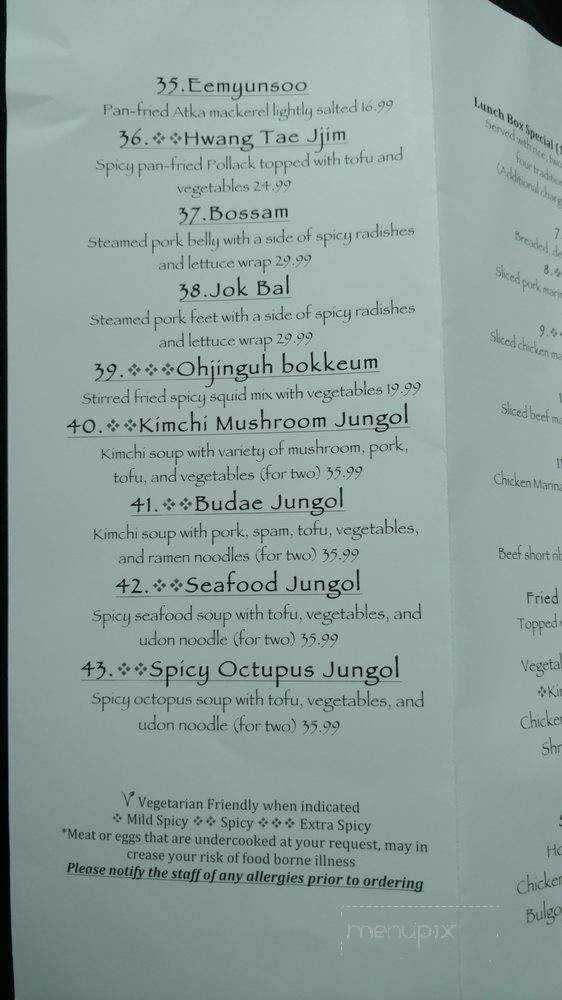 35.Eemyunsoo
Pan-fried Atka mackerel lightly salted 16.99
36.❖❖Hwang Tae Jjim
Spicy pan-fried Pollack topped with tofu and
vegetables 24.99
37.Bossam
Steamed pork belly with a side of spicy radishes
and lettuce wrap 29.99
38.Jok Bal
Steamed pork feet with a side of spicy radishes
and lettuce wrap 29.99
39.❖❖❖Ohjinguh bokkeum
Stirred fried spicy squid mix with vegetables 19.99
40.❖❖Kimchi Mushroom Jungol
Kimchi soup with variety of mushroom, pork,
tofu, and vegetables (for two) 35.99
41.❖❖Budae Jungol
Kimchi soup with pork, spam, tofu, vegetables,
and ramen noodles (for two) 35.99
42.❖❖Seafood Jungol
Spicy seafood soup with tofu, vegetables, and
udon noodle (for two) 35.99
43.❖❖Spicy Octupus Jungol
Spicy octopus soup with tofu, vegetables, and
udon noodle (for two) 35.99
V Vegetarian Friendly when indicated
❖ Mild Spicy ❖❖ Spicy ❖❖❖ Extra Spicy
*Meat or eggs that are undercooked at your request, may in
crease your risk of food borne illness
Please notify the staff of any allergies prior to ordering
Lunch Box Special (
Served with rice,
four
(Additional
Breaded,
8.❖
Sliced pork
9.❖
Sliced chicken
Sliced beef
Chicken
Beef short
Fried
Topped
Chicken
menupix